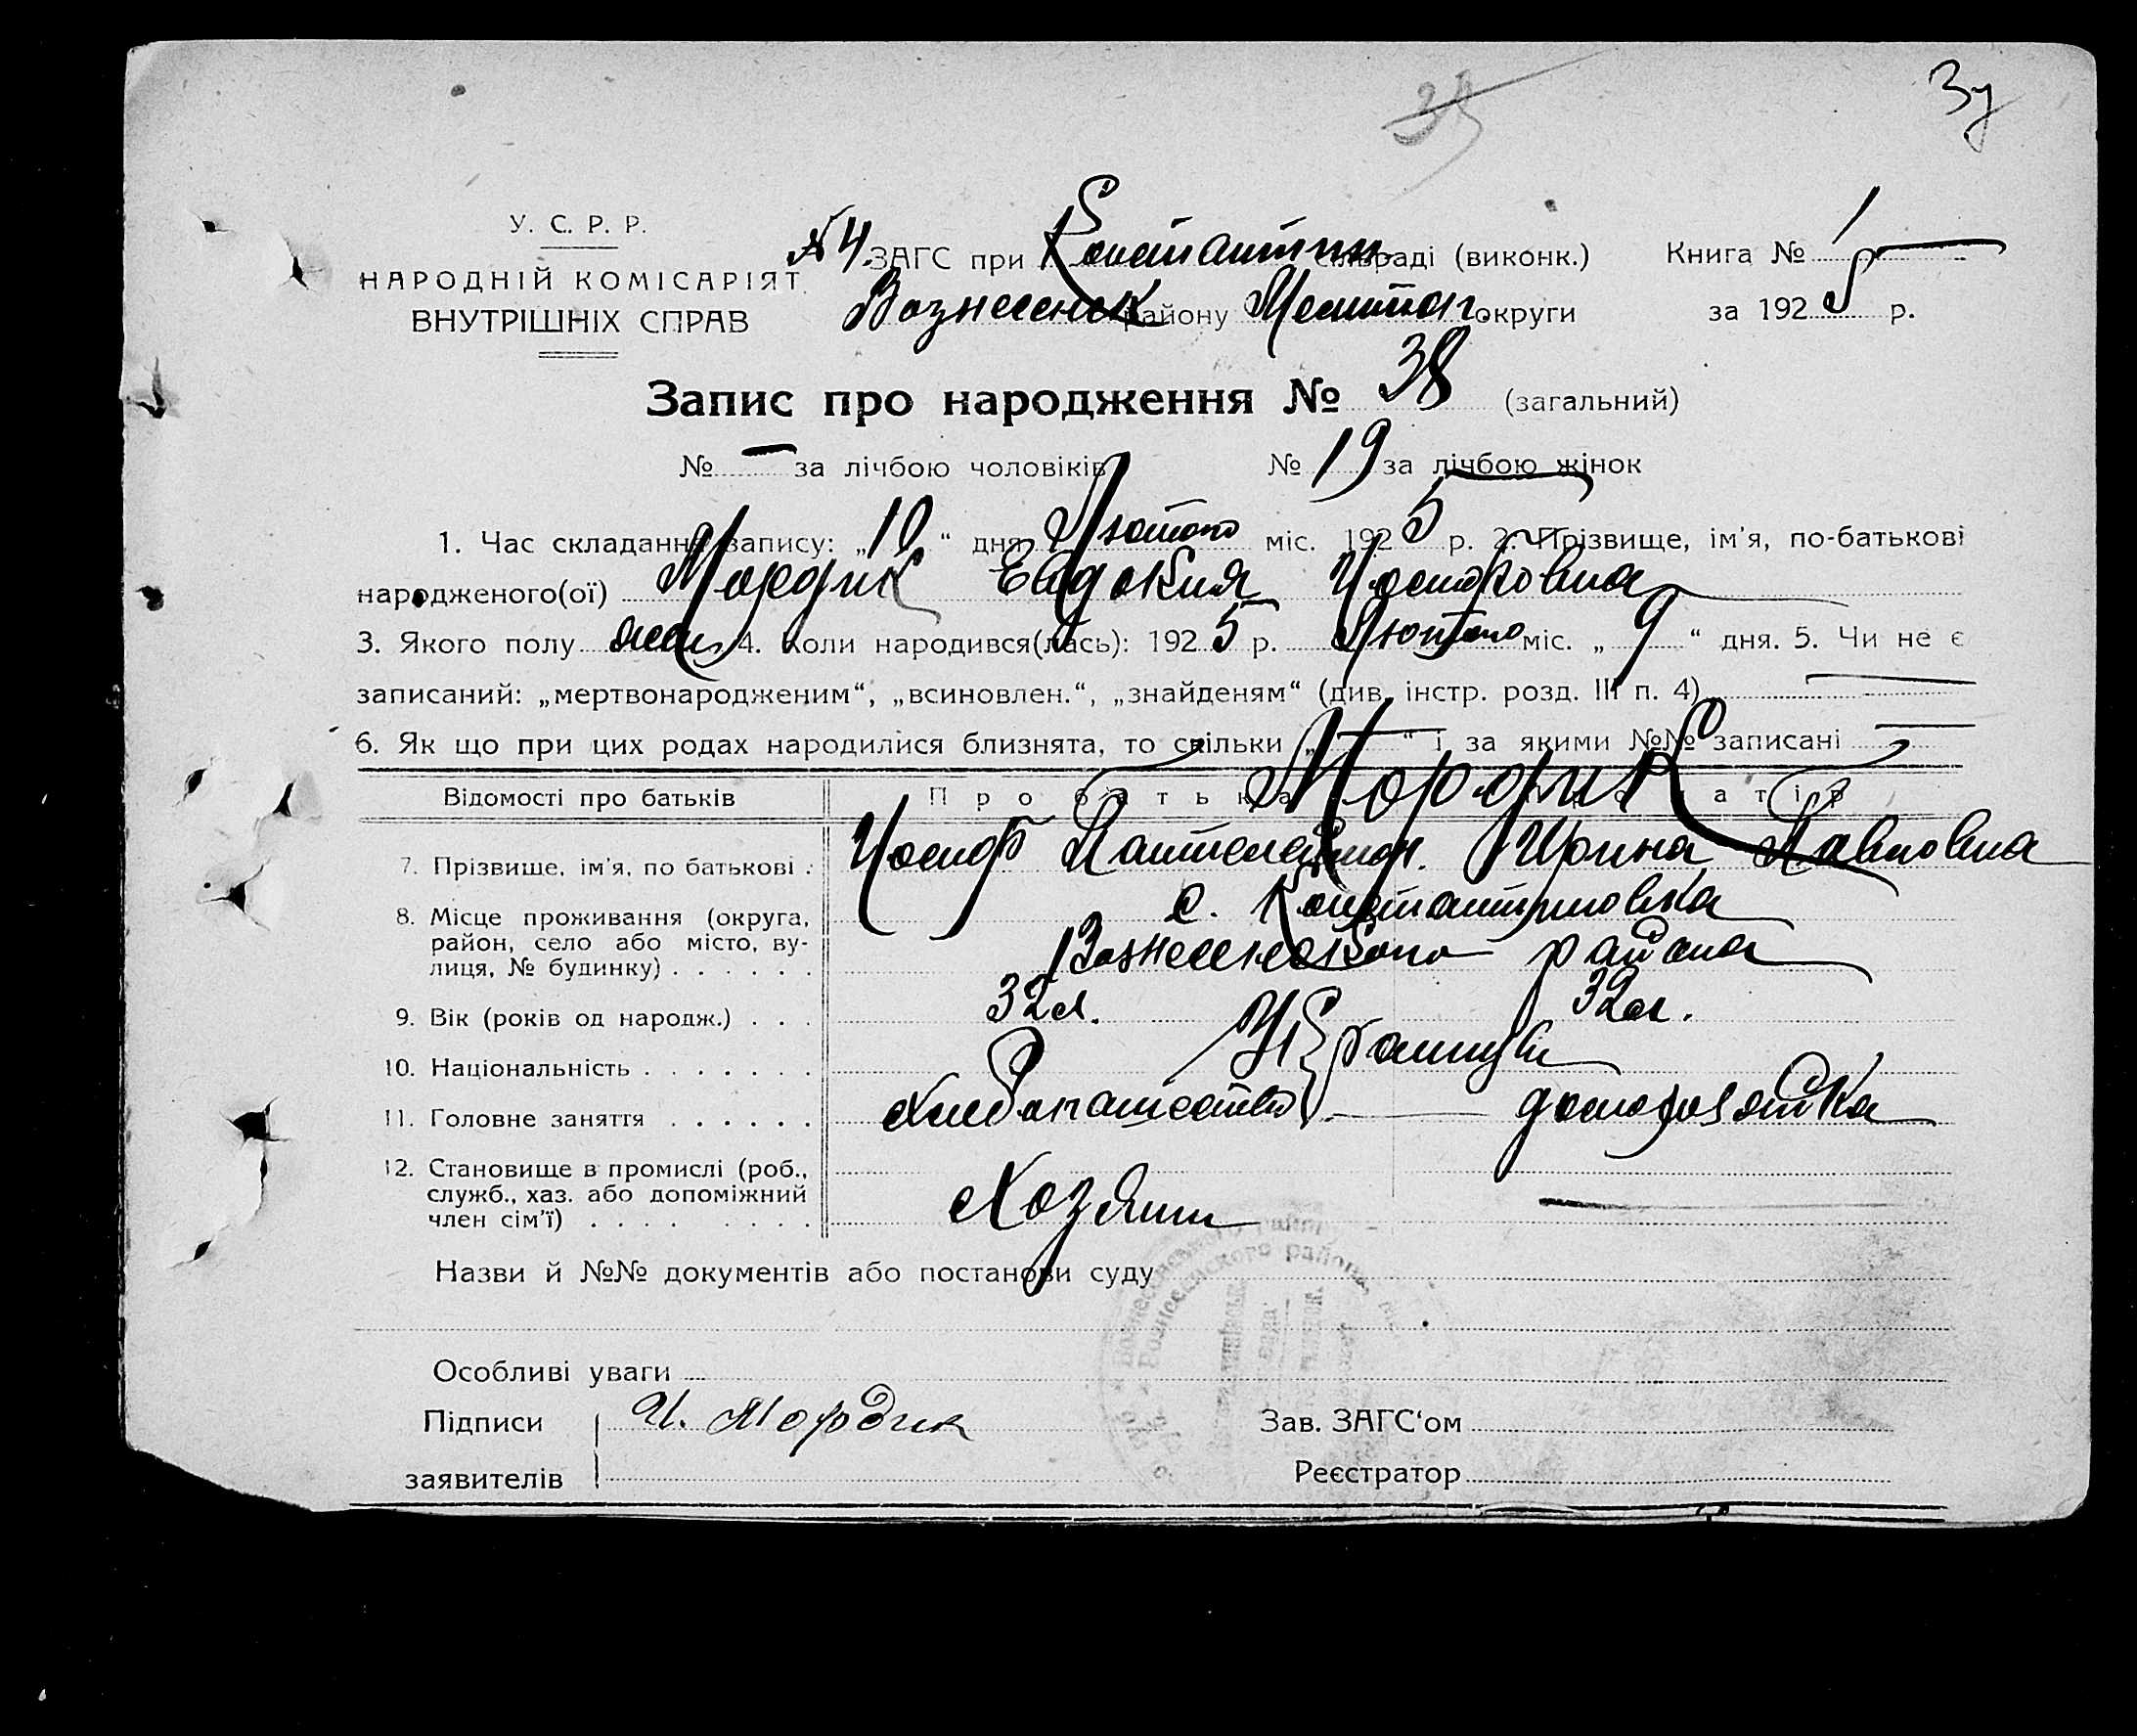 У. С. Р. Р.
НАРОДНІЙ КОМІСАРІЯТ
ВНУТРІШНІХ СПРАВ
№ 4 ЗАГС при Константин. сільраді (виконк.)
Вознесенск району Мелитоп. округи
Книга № 1
за 1925 р.
Запис про народження № 38 (загальний)
№ — за лічбою чоловіків № 19 за лічбою жінок
1. Час складання запису: „10“ дня Лютого міс. 1925 р. 2. Прізвище, ім'я, по-батькові
народженого(ої) Мордик Евдокия Иосифовна
3. Якого полу жен. 4. Коли народився(лась): 1925 р. Лютого міс. „9“ дня. 5. Чи не є
записаний: „мертвонародженим“, „всиновлен.“, „знайденям“ (див. інстр. розд. III п. 4) —
6. Як що при цих родах народилися близнята, то скільки „—“ і за якими №№ записані —
Відомості про батьків Про батька Про матір
Мордик
7. Прізвище, ім'я, по батькові : Иосиф Пантелеймон. Ирина Павловна
8. Місце проживання (округа, район, село або місто, вулиця, № будинку) . . . . . .
с. Константиновка
Вознесенского района
9. Вік (років од народж.) . . . 32 л. 32 л.
10. Національність . . . . . . . Украинцы
11. Головне заняття . . . . . . Хлебопашество — домохозяйка
12. Становище в промислі (роб., служб., хаз. або допоміжний член сім'ї) . . . . . . . . Хозяин —
Назви й №№ документів або постанови суду
Вознесенского района
Особливі уваги
Підписи И. Мордик Зав. ЗАГС‘ом
заявителів Реєстратор